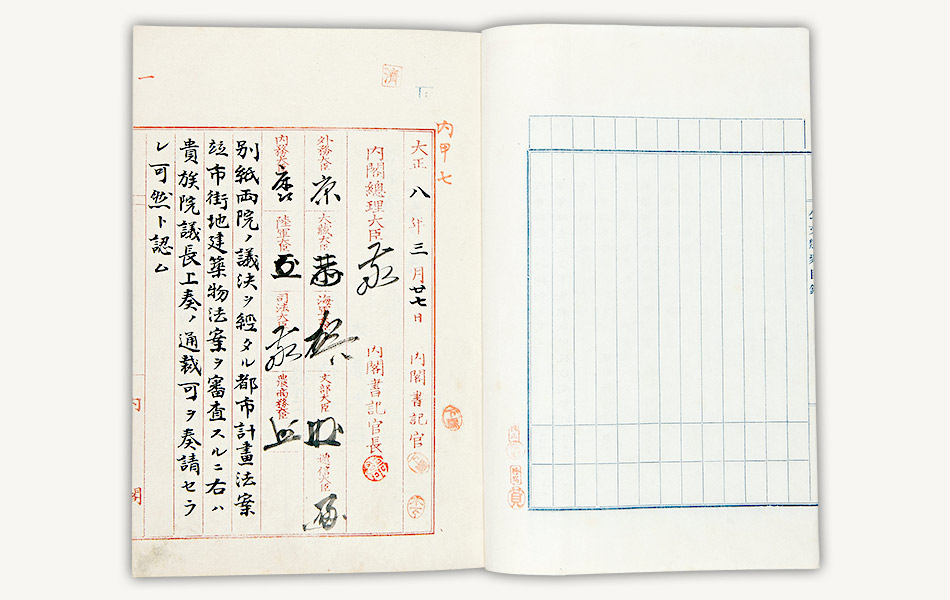 濟
内甲七
大正八年三月廿七日
内閣書記官
内閣總理大臣
内閣書記官長
外務大臣
大藏大臣
海軍大臣
文部大臣
遞信大臣
内務大臣
陸軍大臣
司法大臣
農商務大臣
別紙両院ノ議決ヲ經タル都市計畫法案
竝市街地建築物法案ヲ審査スルニ右ハ
貴族院議長上奏ノ通裁可ヲ奏請セラ
レ可然ト認ム
一
内閣